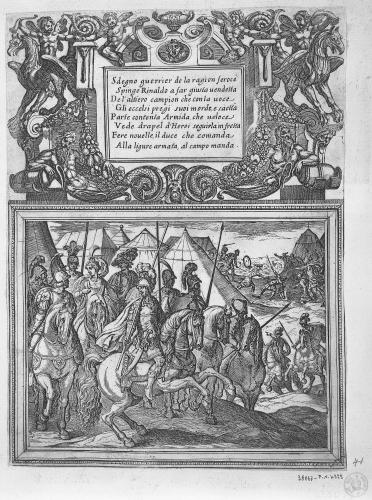 Sdegno guerrier de la ragion feroce
Spinge Rinaldo a far giusta uendetta
De l'altiero campion che con la uoce
Gli eccelsi pregi suoi morde, e saetta
Parte contenta Armida, che ueloce
Vede drapel d'Heroi seguirla in fretta
Fere nouelle, il duce che comanda
Alla ligure armata, al campo manda